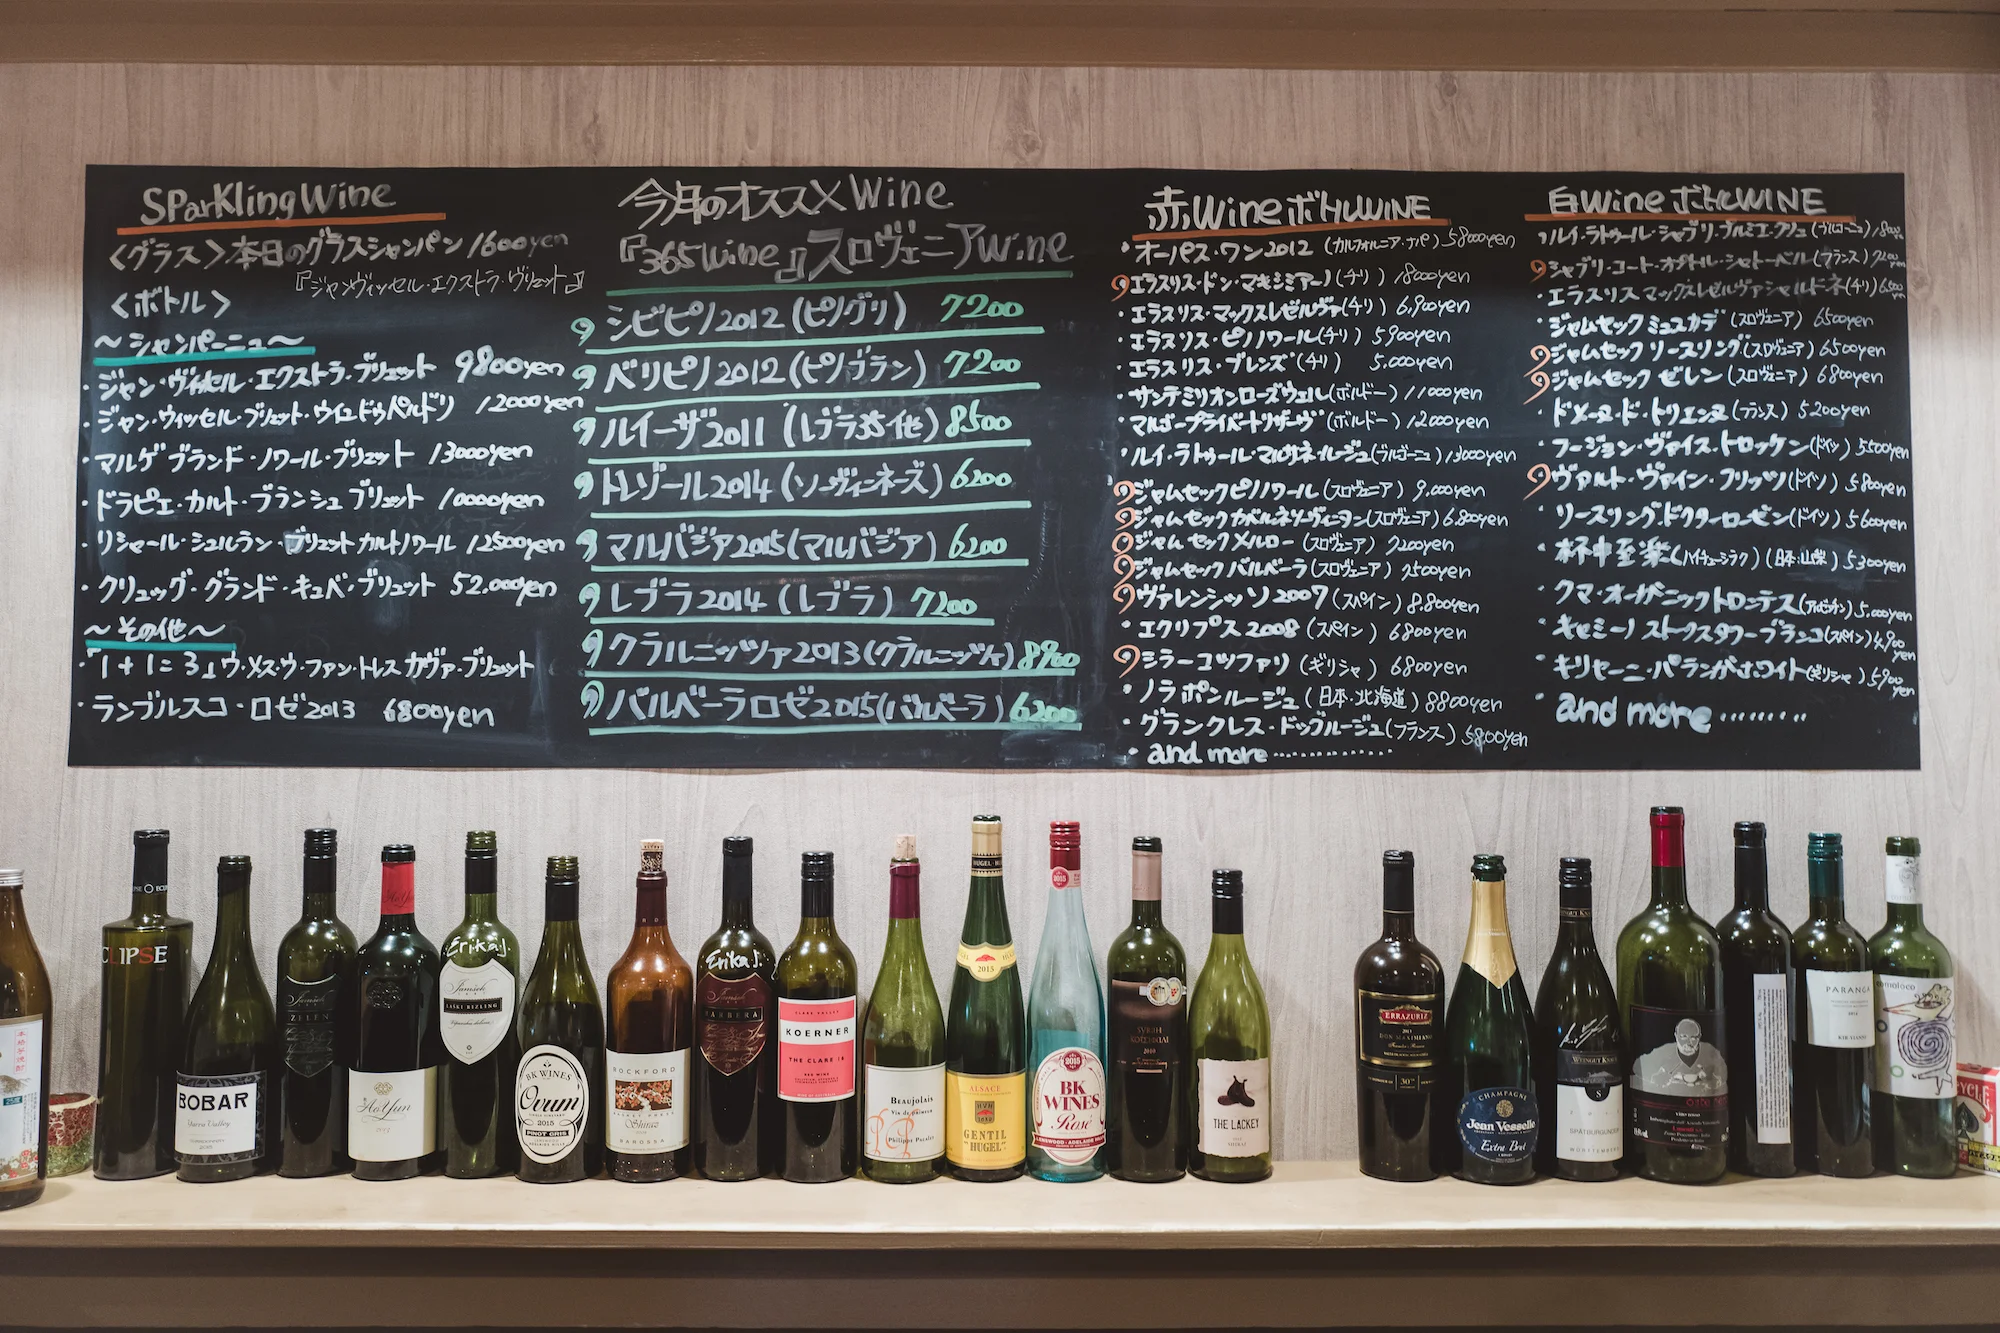 SParKlingWine
〈グラス〉本日のグラスシャンパン 1600yen
『ジャンヴィッセル・エクストラ・ヴリュット』
〈ボトル〉
〜シャンパーニュ〜
・ジャン・ヴィッセル・エクストラ・ブリュット 9800yen
・ジャン・ウィッセル・ブリュット 12000yen
・マルゲ ブランド・ノワール・ブリュット 13000yen
・ドラピエ・カルト・ブランシュ ブリュット 10000yen
・リシャール・シュルラン・ブリュットカルトノワール 12500yen
・クリュッグ・グランド・キュベ・ブリュット 52.000yen
〜その他〜
・「1+1=3」ウ・メス・ウ・ファン・トレス カヴァ・ブリュット
・ランブルスコ・ロゼ2013 6800yen
今月のオススメWine
『365wine』スロヴェニアwine
シビピノ2012(ピノグリ) 7200
ベリピノ2012(ピノブラン) 7200
ルイーザ2011(レブラ35他) 8500
トレゾール2014(ソーヴィニヨンズ) 6200
マルバジア2015(マルバジア) 6200
レブラ2014(レブラ) 7200
クラルニッツァ2013(クラルニッツァ) 8900
バルベーラロゼ2015(バルベーラ) 6200
赤WineボトルWINE
・オーパス・ワン2012(カルフォルニア・ナパ) 58000yen
エラスリス・ドン・マキシミアーノ(チリ) 18000yen
・エラスリス・マックスレゼルヴァ(チリ) 6,900yen
・エラスリス・ピノノワール(チリ) 5900yen
・エラスリス・ブレンズ(チリ) 5.000yen
・サンテミリオンローズウェル(ボルドー) 11000yen
・マルゴープライベートリザーヴ(ボルドー) 12000yen
・ルイ・ラトゥール・マルサネ・ルージュ(ブルゴーニュ) 13000yen
ジャムセックピノノワール(スロヴェニア) 9.000yen
ジャムセックカベルネソーヴィニヨン(スロヴェニア) 6.800yen
ジャムセックメルロー(スロヴェニア) 7200yen
ジャムセックバルベーラ(スロヴェニア) 7500yen
ヴァレンシッソ2007(スペイン) 8.800yen
・エクリプス2008(スペイン) 6800yen
ミラーコツファリ(ギリシャ) 6800yen
・ノラポンルージュ(日本・北海道) 8800yen
・グランクレス・ドックルージュ(フランス) 5800yen
・and more
白WineボトルWINE
・ルイ・ラトゥール・シャブリ・プルミエ・クリュ(ブルゴーニュ)
シャブリ・コート・オブトル・シャトーベル(フランス) 7200yen
・エラスリスマックスレゼルヴァシャルドネ(チリ) 6,500yen
・ジャムセックミュスカデ(スロヴェニア) 6500yen
ジャムセックリースリング(スロヴェニア) 6500yen
ジャムセックゼレン(スロヴェニア) 6800yen
・ドメーヌ・ド・トリエンヌ(フランス) 5200yen
・フージョン・ヴァイス・トロッケン(ドイツ) 5500yen
ヴァルト・ヴァイン・フリッツ(ドイツ) 5800yen
・リースリング・ドクターローゼン(ドイツ) 5600yen
・杯中至楽(ハイチューシラク)(日本・山梨) 5300yen
・クマ・オーガニックトロンテス(アルゼンチン) 5,000yen
・キャミーノ ストークスタワーブランコ(スペイン) 4,900yen
・キリヤーニ・パランガホワイト(ギリシャ) 5900yen
・and more
ECLIPSE
BOBAR
Yarra Valley
ZELEN
Ao Yun
2013
Erika J.
Jamsek
LASKI RIZLING
BK WINES
Ovum
2015
PINOT GRIS
ROCKFORD
BASKET PRESS
Shiraz
BAROSSA
Erika J.
Jamsek
BARBERA
CLARE VALLEY
KOERNER
THE CLARE 16
RED WINE
Beaujolais
Philippe Pacalet
HUGEL
2015
ALSACE
GENTIL
"HUGEL"
2015
2015
BK
WINES
Rosé
LENSWOOD·ADELAIDE HILLS
SYRAH
2010
THE LACKEY
SHIRAZ
ERRAZURIZ
DON MAXIMIANO
30
CHAMPAGNE
Jean Vesselle
Extra Brut
WEINGUT
S
SPÄTBURGUNDER
WÜRTTEMBERG
vino rosso
PARANGA
KIR-YIANNI